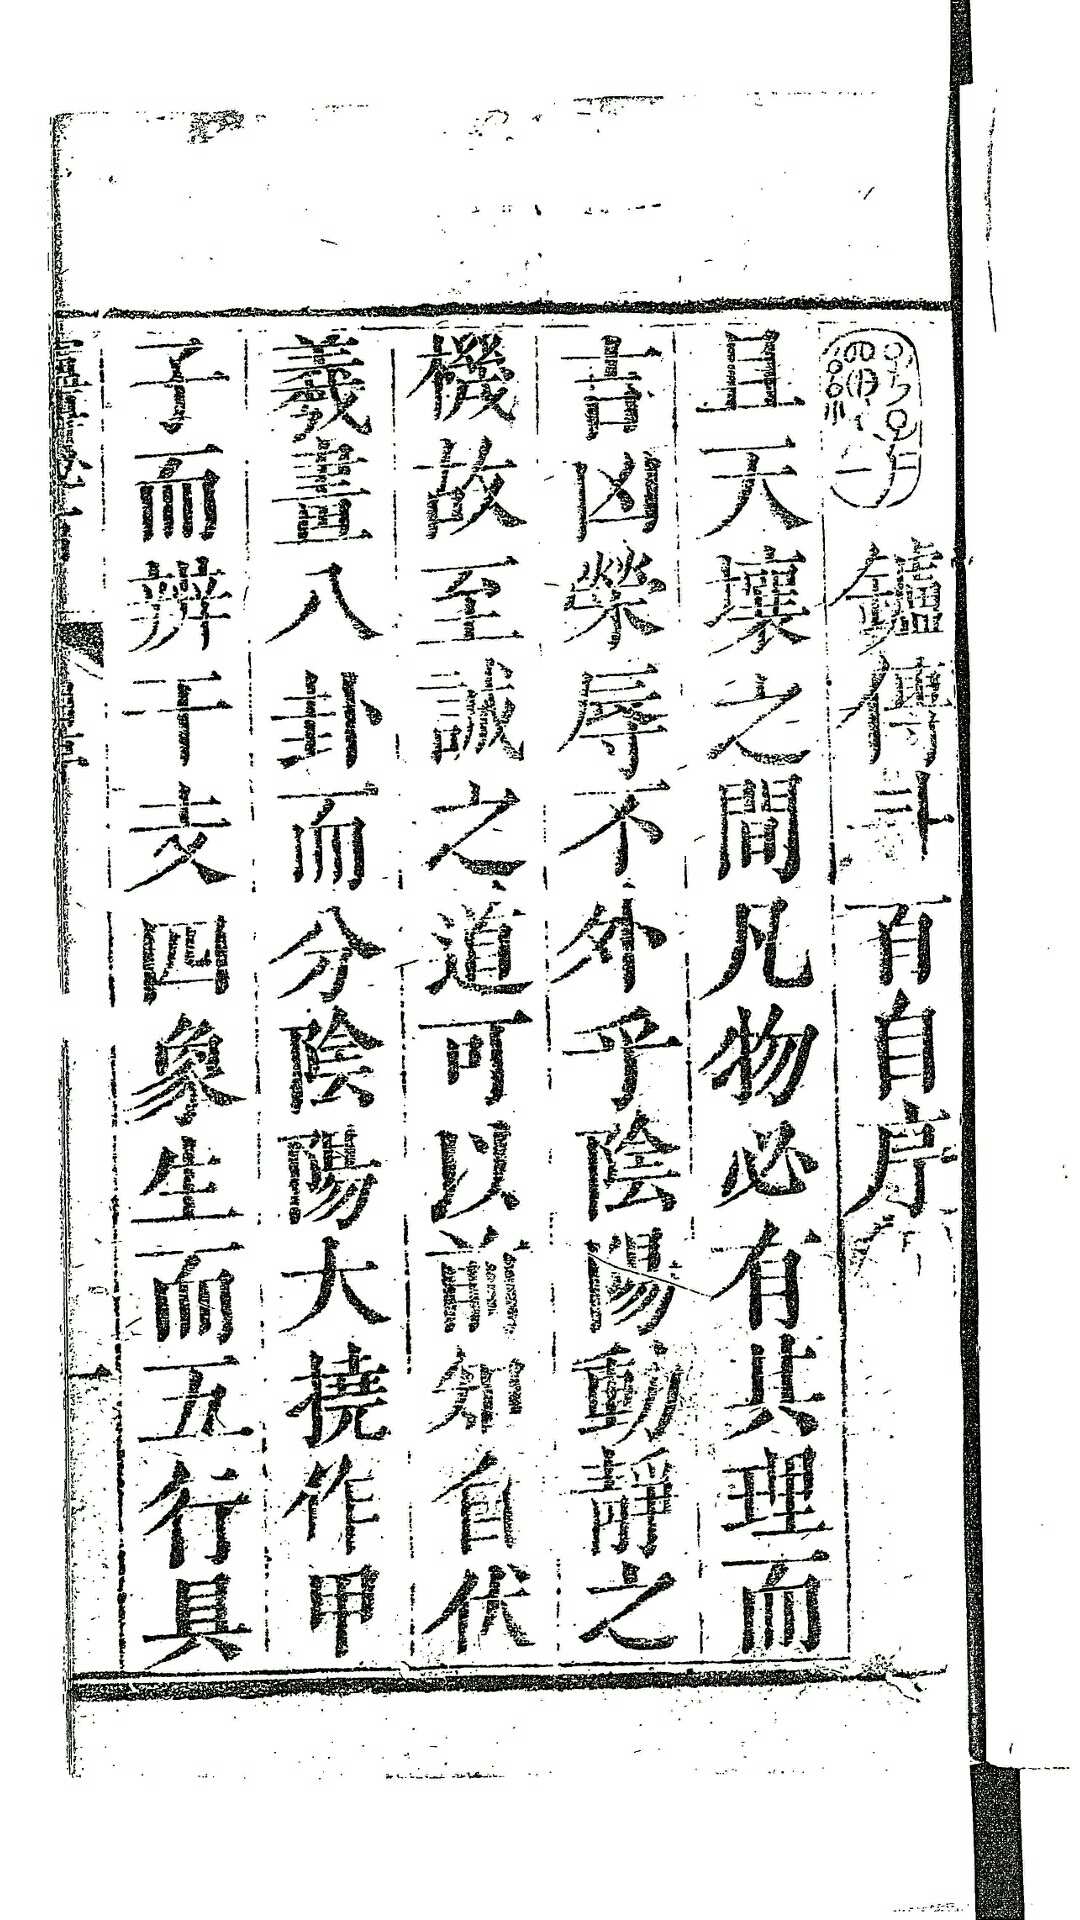 鑪傳斗首自序
且天壤之間凡物必有其理而
吉凶榮辱不外乎陰陽動靜之
機故至誠之道可以前知自伏
羲畫八卦而分陰陽大撓作甲
子而辨干支四象生而五行具
一